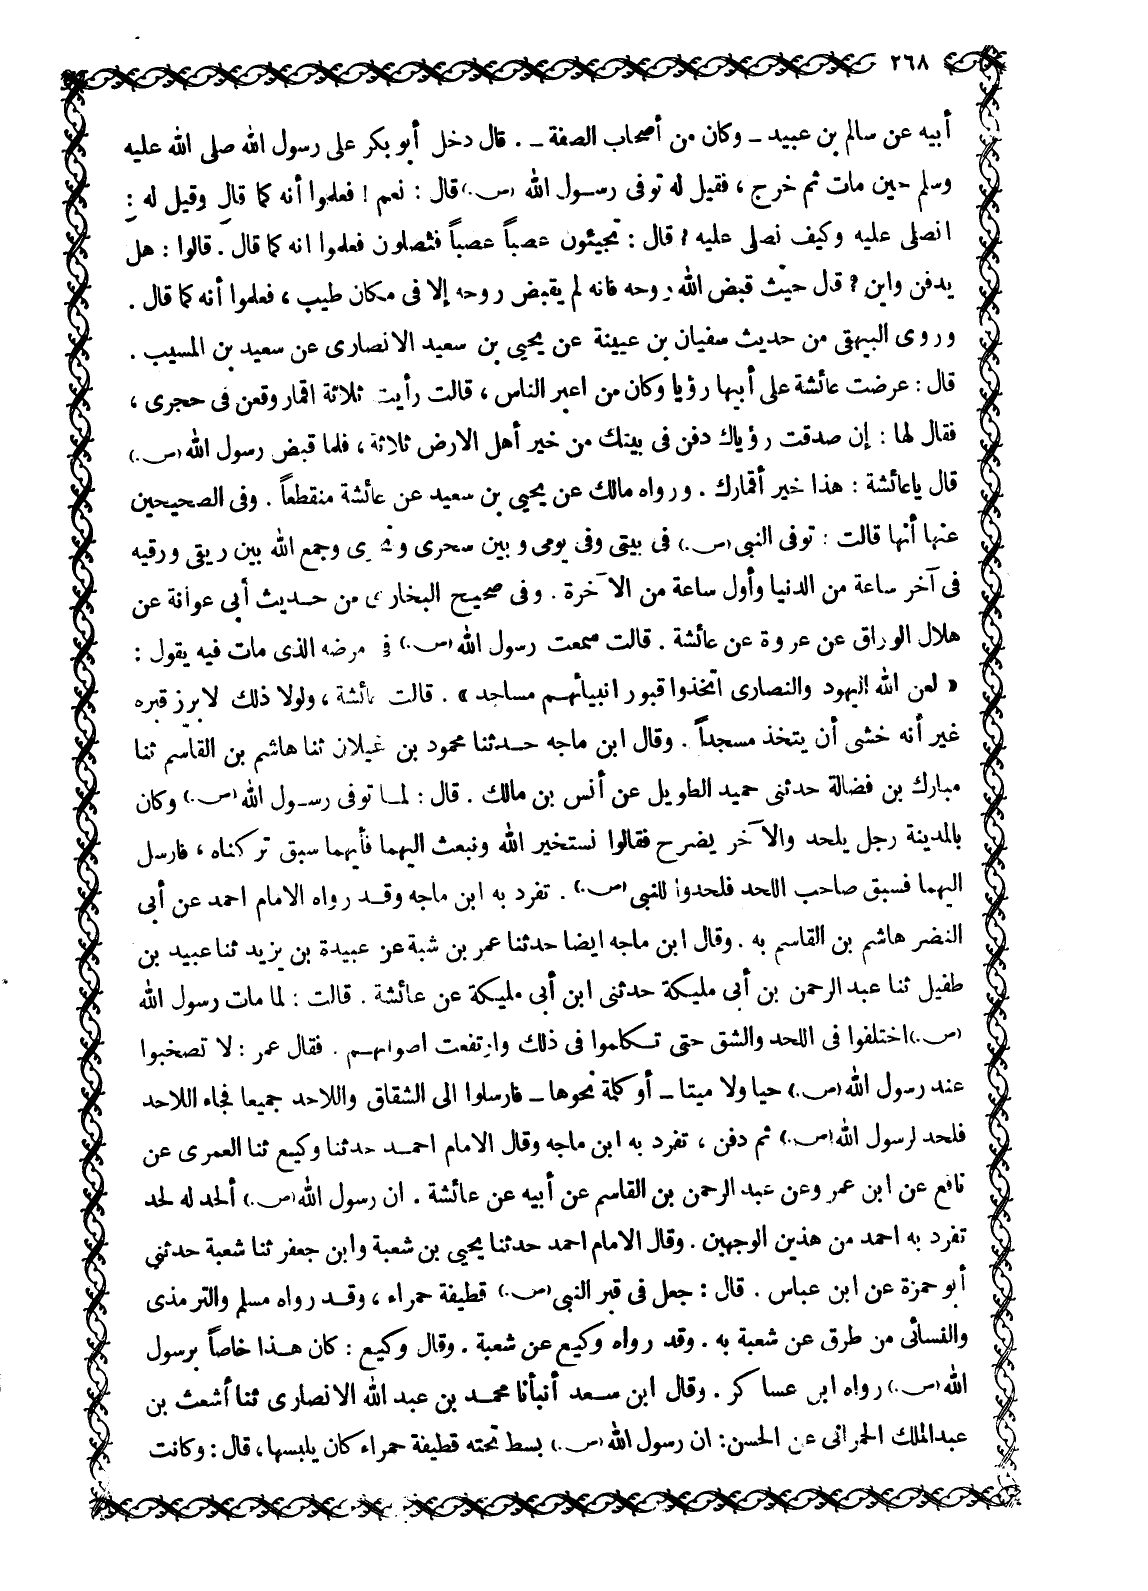 ٢٦٨
أبيه عن سالم بن عبيد ـ وكان من أصحاب الصفة ـ . قال دخل أبو بكر على رسول الله صلى الله عليه
وسلم حين مات ثم خرج ، فقيل له توفى رسول الله (ص.) قال : نعم ! فعلموا أنه كما قال وقيل له :
انصلى عليه وكيف نصلى عليه ? قال : تجيئون عصباً عصباً فتصلون فعلموا انه كما قال . قالوا : هل
يدفن واين ? قال حيث قبض الله روحه فانه لم يقبض روحه إلا فى مكان طيب ، فعلموا أنه كما قال .
وروى البيهقى من حديث سفيان بن عيينة عن يحيى بن سعيد الانصارى عن سعيد بن المسيب .
قال : عرضت عائشة على أبيها رؤيا وكان من اعبر الناس ، قالت رأيت ثلاثة اقمار وقعن فى حجرى ،
فقال لها : إن صدقت رؤياك دفن فى بيتك من خير أهل الارض ثلاثة ، فلما قبض رسول الله (ص.)
قال ياعائشة : هذا خير أقمارك . ورواه مالك عن يحيى بن سعيد عن عائشة منقطعاً . وفى الصحيحين
عنها أنها قالت : توفى النبى (ص.) فى بيتى وفى يومى وبين سحرى ونحرى وجمع الله بين ريقى وريقه
فى آخر ساعة من الدنيا وأول ساعة من الآخرة . وفى صحيح البخارى من حديث أبى عوانة عن
هلال الوراق عن عروة عن عائشة . قالت سمعت رسول الله (ص.) فى مرضه الذى مات فيه يقول :
« لعن الله اليهود والنصارى اتخذوا قبور انبيائهم مساجد » . قالت عائشة ، ولولا ذلك لابرز قبره
غير أنه خشى أن يتخذ مسجداً . وقال ابن ماجه حدثنا محمود بن غيلان ثنا هاشم بن القاسم ثنا
مبارك بن فضالة حدثنى حميد الطويل عن أنس بن مالك . قال : لما توفى رسول الله (ص.) وكان
بالمدينة رجل يلحد والآخر يضرح فقالوا نستخير الله ونبعث اليهما فأيهما سبق تركناه ، فارسل
اليهما فسبق صاحب اللحد فلحدوا للنبى (ص.) . تفرد به ابن ماجه وقد رواه الامام احمد عن أبى
النضر هاشم بن القاسم به . وقال ابن ماجه ايضا حدثنا عمر بن شبة عن عبيدة بن يزيد ثنا عبيد بن
طفيل ثنا عبد الرحمن بن أبى مليكة حدثنى ابن أبى مليكة عن عائشة . قالت : لما مات رسول الله
(ص.) اختلفوا فى اللحد والشق حتى تكلموا فى ذلك وارتفعت اصواتهم . فقال عمر : لا تصخبوا
عند رسول الله (ص.) حيا ولا ميتا ـ أو كلمة نحوها ـ فارسلوا الى الشقاق واللاحد جميعا فجاء اللاحد
فلحد لرسول الله (ص.) ثم دفن ، تفرد به ابن ماجه وقال الامام احمد حدثنا وكيع ثنا العمرى عن
نافع عن ابن عمر وعن عبد الرحمن بن القاسم عن أبيه عن عائشة . ان رسول الله (ص.) ألحد له لحد
تفرد به احمد من هذين الوجهين . وقال الامام احمد حدثنا يحيى بن شعبة وابن جعفر ثنا شعبة حدثنى
أبو حمزة عن ابن عباس . قال : جعل فى قبر النبى (ص.) قطيفة حمراء ، وقد رواه مسلم والترمذى
والنسائى من طرق عن شعبة به . وقد رواه وكيع عن شعبة . وقال وكيع : كان هذا خاصاً برسول
الله (ص.) رواه ابن عساكر . وقال ابن سعد أنبأنا محمد بن عبد الله الانصارى ثنا أشعث بن
عبدالملك الحمرانى عن الحسن : ان رسول الله (ص.) بسط تحته قطيفة حمراء كان يلبسها ، قال : وكانت